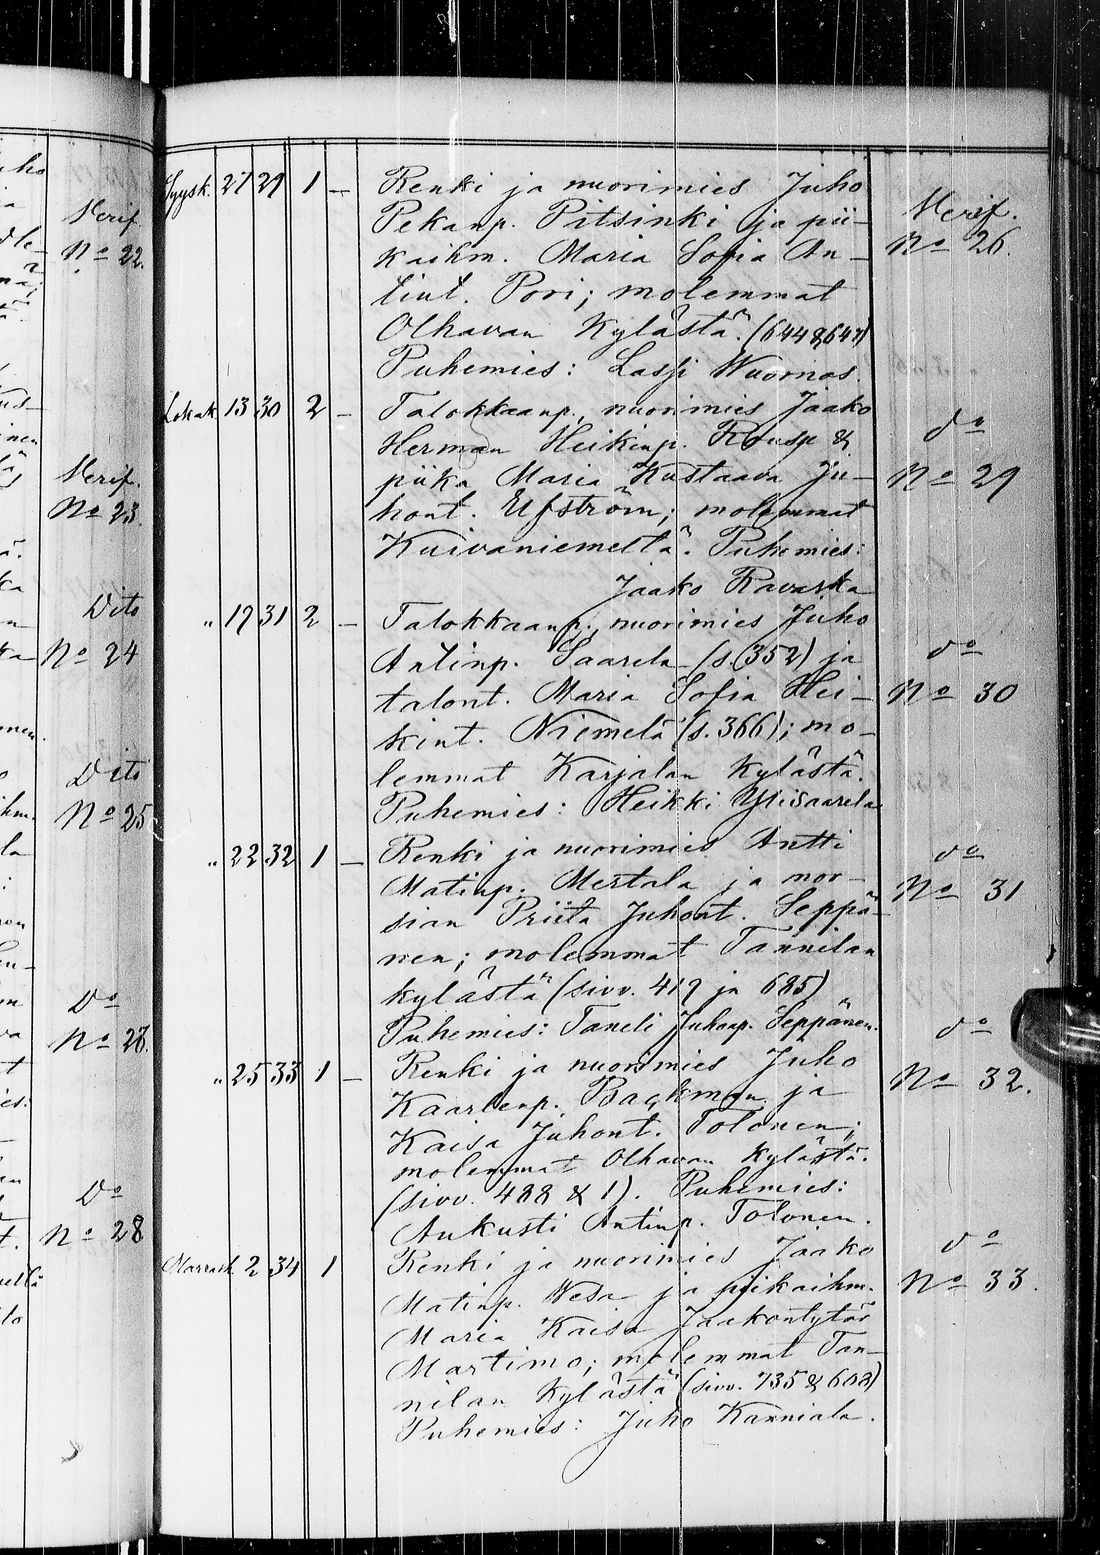 Verif.
No 22.
Verif.
No 23.
Dito
No 24
Dito
No 25
Do
No 28
Syysk. 27 29 1 — Renki ja nuorimies Juho
Pekanp. Pitsinki ja pii-
kaihm. Maria Sofia An-
tint. Pori; molemmat
Olhavan kylästä. (644 & 647)
Puhemies: Lassi Wuornos.
Verif.
No 26.
Lokak. 13 30 2 — Talokkaanp., nuorimies Jaako
Herman Heikinp. &
piika Maria Kustaava Ju-
hont. molemmat
Kuivaniemeltä. Puhemies:
Jaako Ravaska
do
No 29
" 19 31 2 — Talokkaanp., nuorimies Juho
Antinp. Saarela (s. 352) ja
talont. Maria Sofia Hei-
kint. Niemelä (s. 366); mo-
lemmat Karjalan kylästä.
Puhemies: Heikki Ylisaarela
do
No 30
" 22 32 1 — Renki ja nuorimies Antti
Matinp. Mertala ja mor-
sian Priita Juhont. Seppä-
nen; molemmat Tannilan
kylästä (sivv. 419 ja 685)
Puhemies: Taneli Juhonp. Seppänen.
do
No 31
" 25 33 1 — Renki ja nuorimies Juho
Kaarlenp. Backman ja
Kaisa Juhont. Tolonen;
molemmat Olhavan kylästä.
(sivv. 488 & 1). Puhemies:
Aukusti Antinp. Tolonen.
do
No 32.
Marrask. 2 34 1 Renki ja nuorimies Jaako
Matinp. Wesa ja piikaihm.
Maria Kaisa Jaakontytär
Martimo; molemmat Tan-
nilan kylästä (sivv. 735 & 608)
Puhemies: Juho Kanniala.
do
No 33.